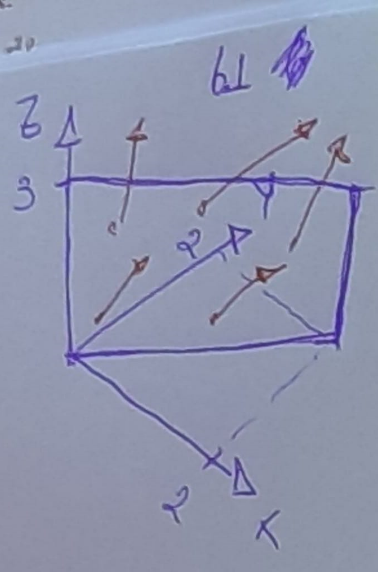 20
61
Z
3
Y
2
2
x